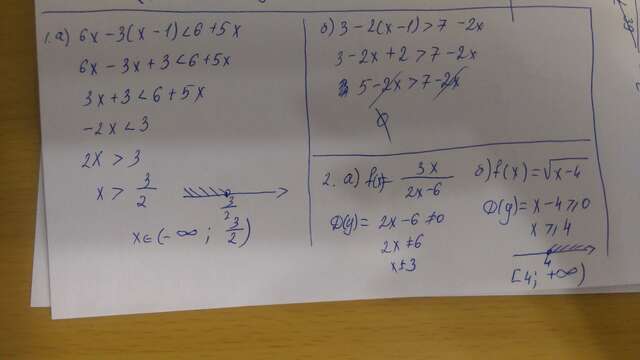 1. а) 6x - 3(x - 1) < 6 + 5x
6x - 3x + 3 < 6 + 5x
3x + 3 < 6 + 5x
-2x < 3
2x > 3
x > 3/2
3/2
x ∈ (-∞; 3/2)
б) 3 - 2(x - 1) > 7 - 2x
3 - 2x + 2 > 7 - 2x
5 - 2x > 7 - 2x
∅
2. а) f(x) = 3x/(2x - 6)
D(y) = 2x - 6 ≠ 0
2x ≠ 6
x ≠ 3
б) f(x) = √(x - 4)
D(y) = x - 4 ⩾ 0
x ⩾ 4
4
[4; +∞)